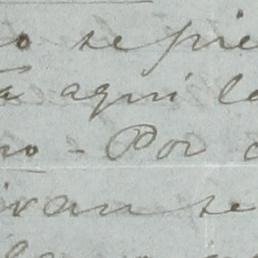 o se pie
a aqui le
no - Por
ivan se